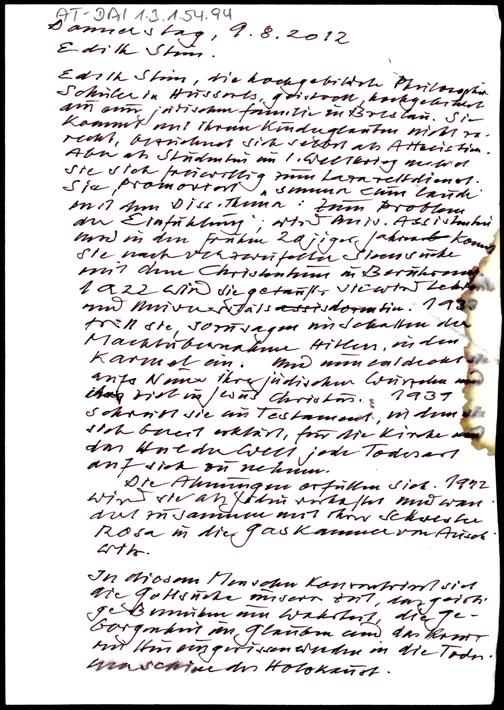 AT-DAI 1.3.1.54.94
Donnerstag, 9.8.2012
Edith Stein.
Edith Stein, die hochgebildete Philosophin
Schülerin Husserls, geistvoll, hochgebildet
aus einer jüdischen Familie in Breslau. Sie
kommt mit ihrem Kinderglauben nicht zu-
recht, bezeichnet sich selbst als Atheistin.
Aber als Studentin im 1. Weltkrieg meldet
sie sich freiwillig zum Lazarettdienst.
Sie promoviert "summa cum laude"
mit dem Diss.thema: "Zum Problem
der Einfühlung", wird Univ. Assistentin
und in den frühen 20iger Jahren kommt
sie nach verzweifelter Sinnsuche
mit dem Christentum in Berührung
1922 wird sie getauft, sie wird Lehrerin
und Universitätsdozentin. 1933
tritt sie, sozusagen im Schatten der
Machtübernahme Hitlers, in den
Karmel ein. Und nun entdeckt sie
aufs Neue ihre jüdischen Wurzeln und
ihr Ziel in Jesus Christus. 1939
schreibt sie ein Testament, in dem sie
sich bereit erklärt, für die Kirche und
das Heil der Welt jede Todesart
auf sich zu nehmen.
Die Ahnungen erfüllen sich. 1942
wird sie als Jüdin verhaftet und wan-
dert zusammen mit ihrer Schwester
Rosa in die Gaskammer von Ausch-
witz.
In diesem Menschen konzentriert sich
die Gottsuche unserer Zeit, das geisti-
ge Bemühen um Wahrheit, die Ge-
borgenheit im Glauben und das
mit Hineingerissenwerden in die Todes-
maschine des Holokaust.